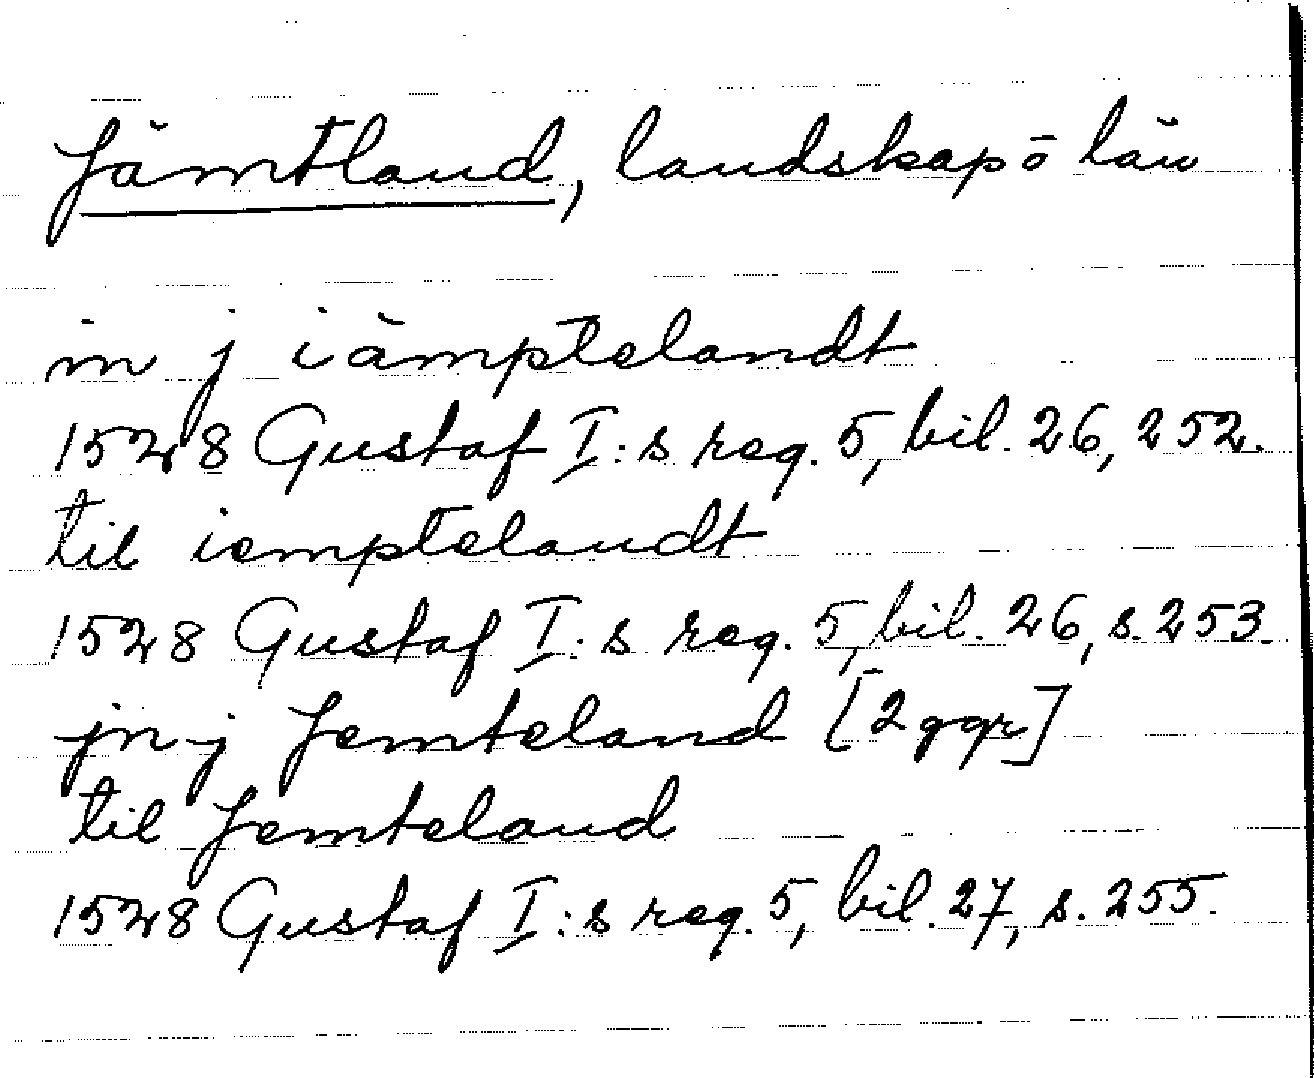 Jämtland, landskap o län
in j iämptelandt
1528 Gustaf I:s reg. 5, bil. 26, 252.
til iemptelandt
1528 Gustaf I:s reg. 5, bil. 26, s. 253.
jn j Jemteland [2 ggr]
til Jemteland
1528 Gustaf I:s reg. 5, bil. 27, s. 255.